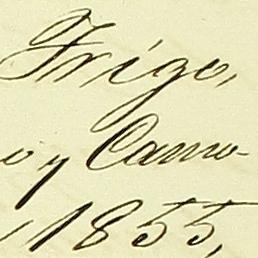 Frigo,
o y Camo-
, 1855,